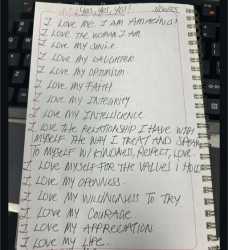 Yes, yes, yes!
I LOVE ME. I AM AMAZING!
I LOVE THE WOMAN I AM
I LOVE MY SMILE
I LOVE MY DAUGHTER
I LOVE MY OPTIMISM
I LOVE MY FAITH
I LOVE MY INTEGRITY
I LOVE MY INTELLIGENCE
I LOVE THE RELATIONSHIP I HAVE WITH
MYSELF THE WAY I TREAT AND SPEAK
TO MYSELF W/ KINDNESS, RESPECT, LOVE
I LOVE MYSELF FOR THE VALUES I HOLD
I LOVE MY OPENNESS
I LOVE MY WILLINGNESS TO TRY
I LOVE MY COURAGE
I LOVE MY APPRECIATION
I LOVE MY LIFE